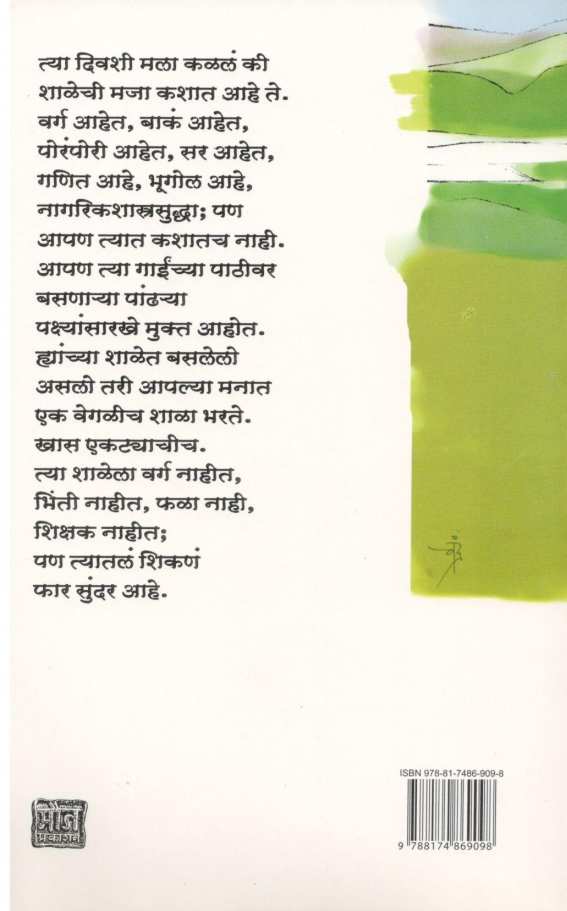 त्या दिवशी मला कळलं की
शाळेची मजा कशात आहे ते.
वर्ग आहेत, बाकं आहेत,
पोरंपोरी आहेत, सर आहेत,
गणित आहे, भूगोल आहे,
नागरिकशास्त्रसुद्धा; पण
आपण त्यात कशातच नाही.
आपण त्या गाईंच्या पाठीवर
बसणाऱ्या पांढऱ्या
पक्ष्यांसारखे मुक्त आहोत.
ह्यांच्या शाळेत बसलेलो
असलो तरी आपल्या मनात
एक वेगळीच शाळा भरते.
खास एकट्याचीच.
त्या शाळेला वर्ग नाहीत,
भिंती नाहीत, फळा नाही,
शिक्षक नाहीत;
पण त्यातलं शिकणं
फार सुंदर आहे.
ISBN 978-81-7486-909-8
9 788174 869098
मौज
प्रकाशन